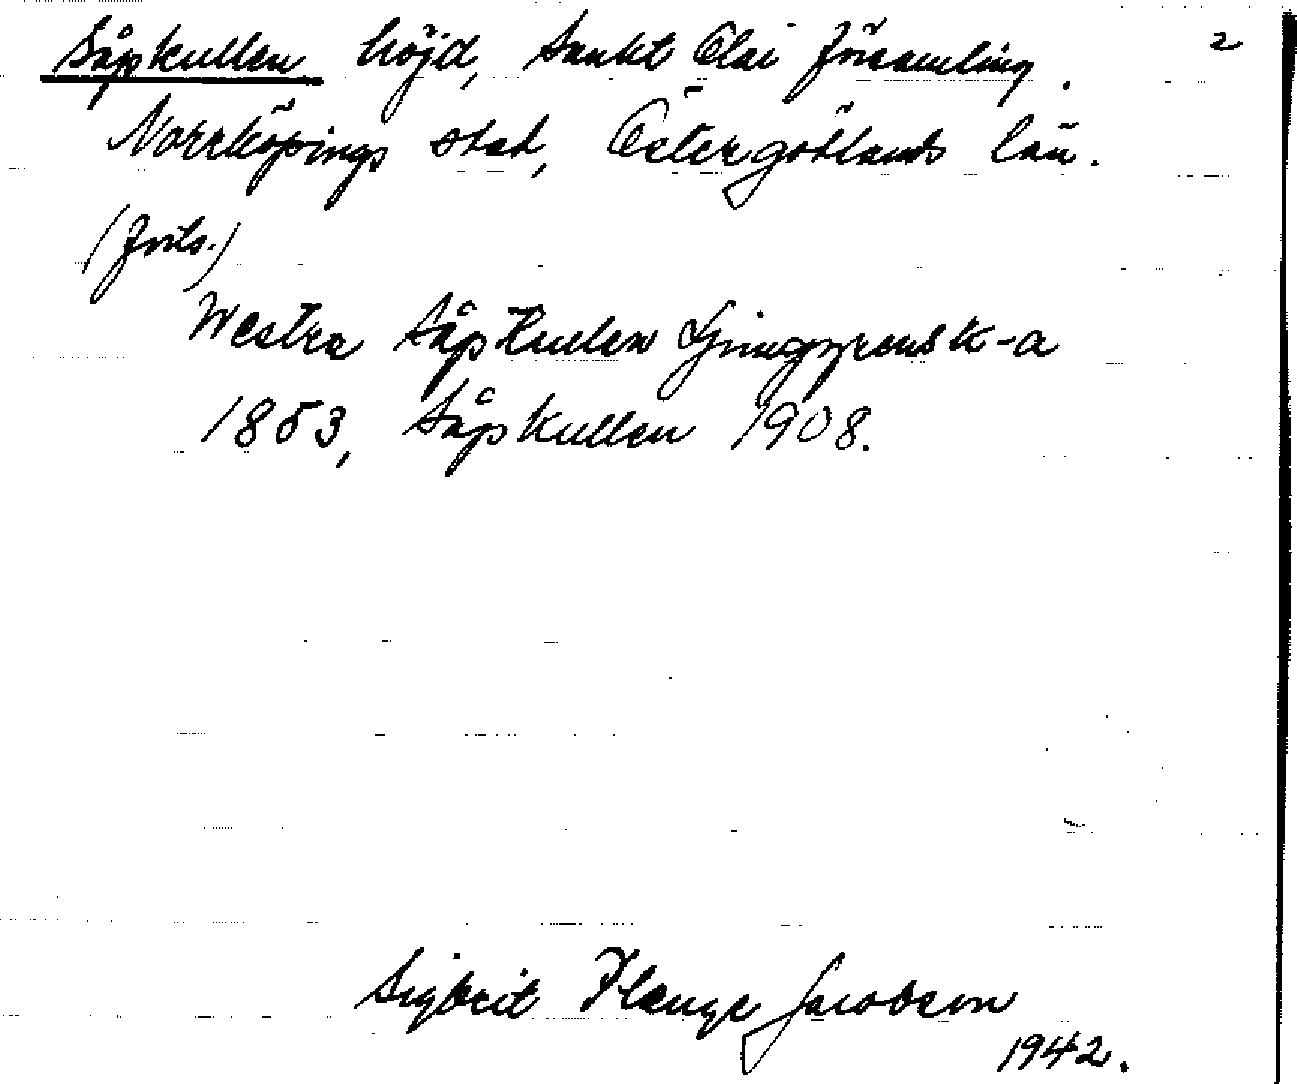 Såpkullen höjd, Sankt Olai församling. 2
Norrköpings stad, Östergötlands län.
(forts.)
Westra Såpkullen Ljunggrens k-a
1853, Såpkullen 1908.
Sigbrit Plænge Jacobson
1942.